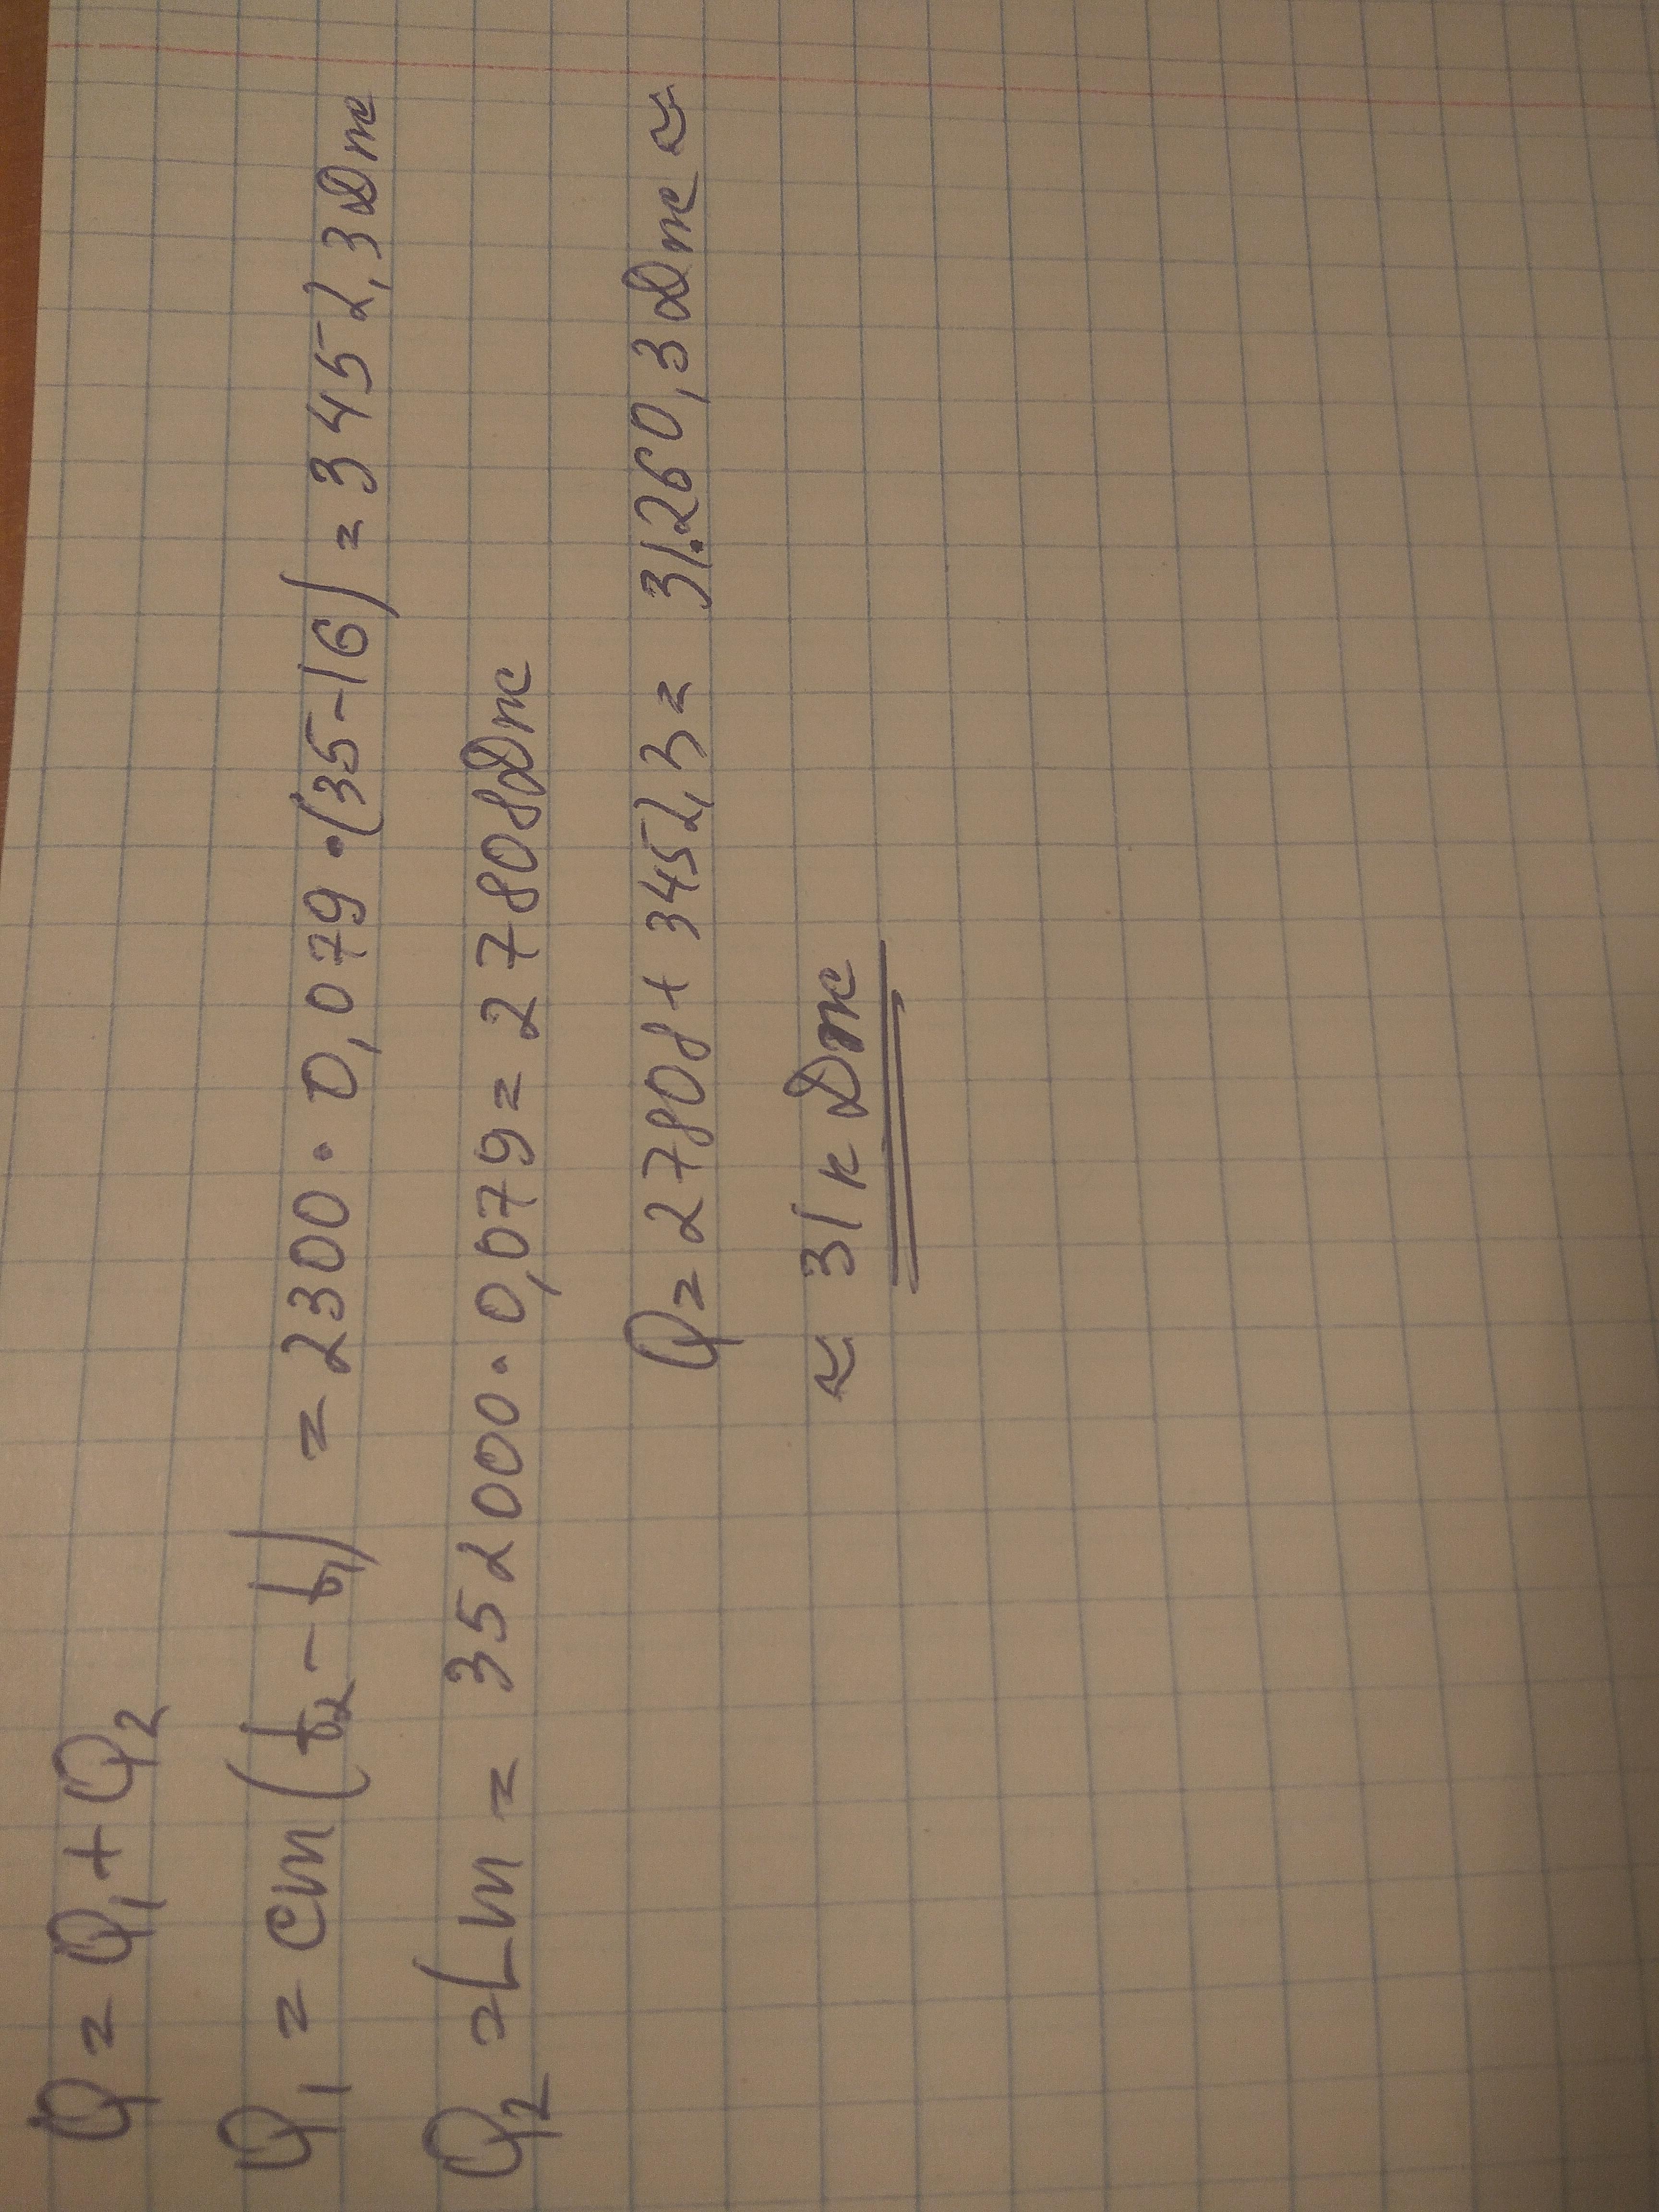 Q = Q₁ + Q₂
Q₁ = cm (t₂ - t₁) = 2300 · 0,079 · (35-16) = 3452,3 Дж
Q₂ = Lm = 352000 · 0,079 = 27808 Дж
Q = 27808 + 3452,3 = 31.260,3 Дж ≈
≈ 31 кДж